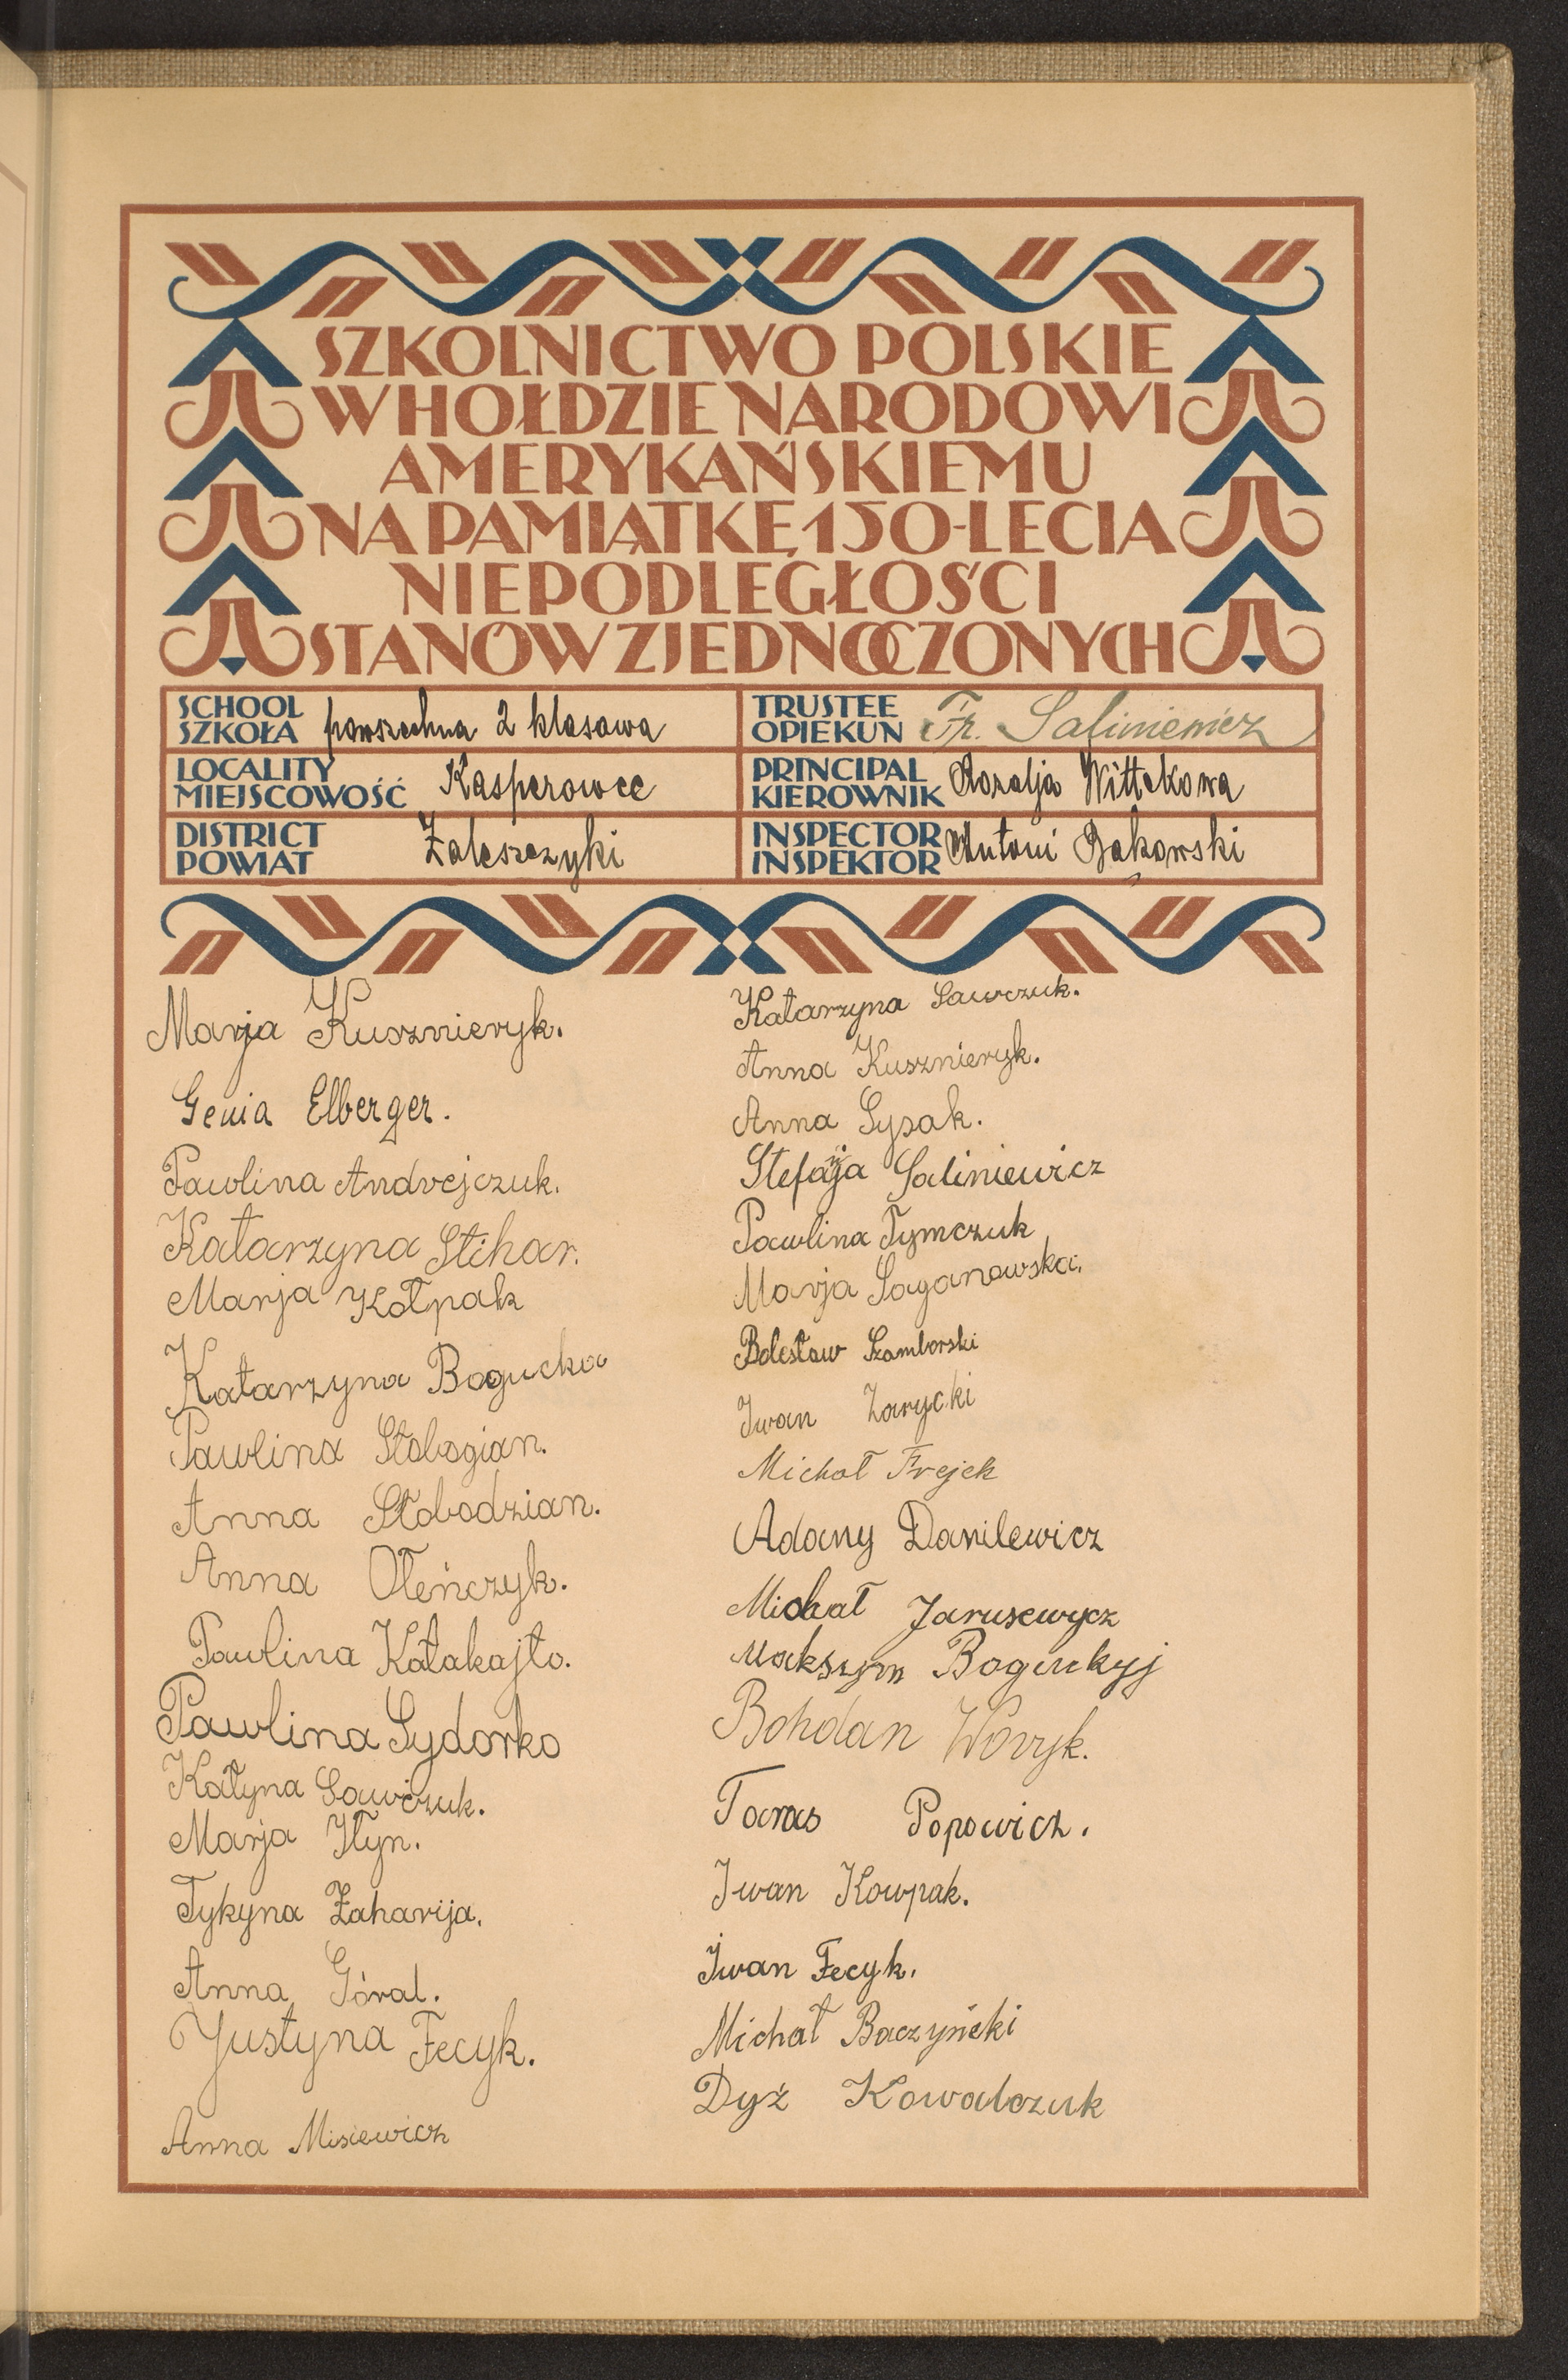 SZKOLNICTWO POLSKIE
W HOŁDZIE NARODOWI
AMERYKAŃSKIEMU
NA PAMIĄTKĘ 150-LECIA
NIEPODLEGŁOŚCI
STANÓW ZJEDNOCZONYCH
SCHOOL
SZKOŁA powszechna 2 klasowa
TRUSTEE
OPIEKUN Fr. Saliniewicz
LOCALITY
MIEJSCOWOŚĆ Kasperowce
PRINCIPAL
KIEROWNIK Rozalja Wittekowa
DISTRICT
POWIAT Zaleszczyki
INSPECTOR
INSPEKTOR Antoni Bąkowski
Marja Kusznieryk.
Genia Elberger.
Pawlina Andrejczuk.
Katarzyna Stihar.
Marja Kołpak
Katarzyna Bogucka
Pawlina Słobogian.
Anna Słobodzian.
Anna Ołeńczyk.
Pawlina Kałakajło.
Pawlina Sydorko
Katyna Sawczuk.
Marja Iłyn.
Tykyna Zaharija.
Anna Góral.
Justyna Fecyk.
Anna Misiewicz
Katarzyna Sawczuk.
Anna Kusznieryk.
Anna Sysak.
Stefanja Saliniewicz
Pawlina Tymczuk
Marja Saganowska.
Bolesław Szamborski
Iwan Zarycki
Michał Frejek
Adany Danilewicz
Michał Jarusewycz
Makszym Boguckyj
Bohdan Woryk.
Taras Popowicz.
Iwan Kowpak.
Iwan Fecyk.
Michał Baczyński
Dyź Kowalczuk